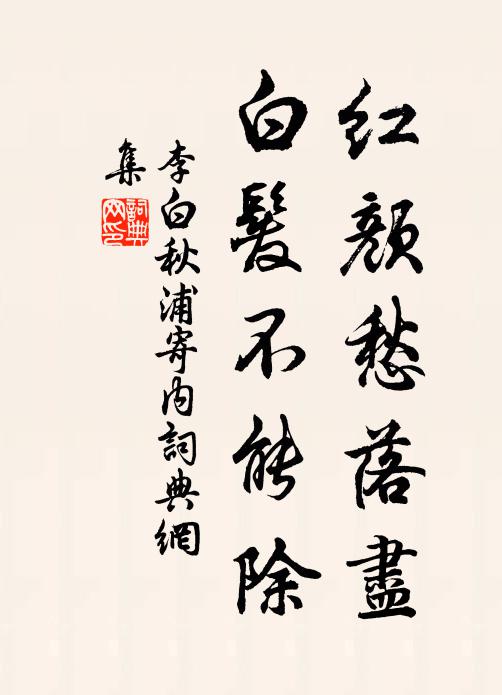 红颜愁落盡
白髮不能除
李白秋浦寄内詞典網
集
詞典
网印